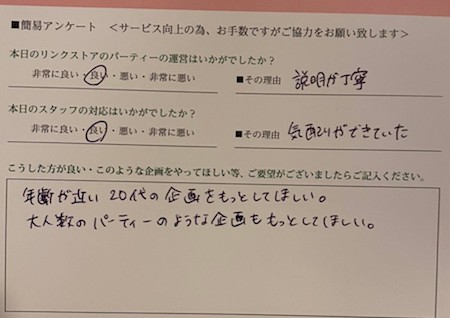 ■簡易アンケート ＜サービス向上の為、お手数ですがご協力をお願い致します＞
本日のリンクストアのパーティーの運営はいかがでしたか？
非常に良い・良い・悪い・非常に悪い ■その理由 説明が丁寧
本日のスタッフの対応はいかがでしたか？
非常に良い・良い・悪い・非常に悪い ■その理由 気配りができていた
こうした方が良い・このような企画をやってほしい等、ご要望がございましたらご記入ください。
年齢が近い20代の企画をもっとしてほしい。
大人数のパーティーのような企画ももっとしてほしい。